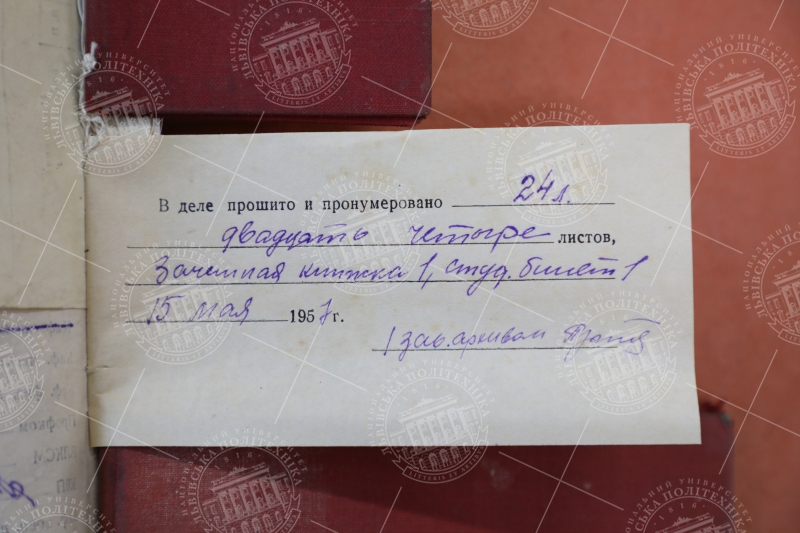 В деле прошито и пронумеровано 24 л.
двадцать четыре листов,
Зачетная книжка 1, студ. билет 1
15 мая 1957 г.
зав. архивом
НАЦІОНАЛЬНИЙ УНІВЕРСИТЕТ
ЛЬВІВСЬКА ПОЛІТЕХНІКА
1816
LITTERIS ET ARTIBUS